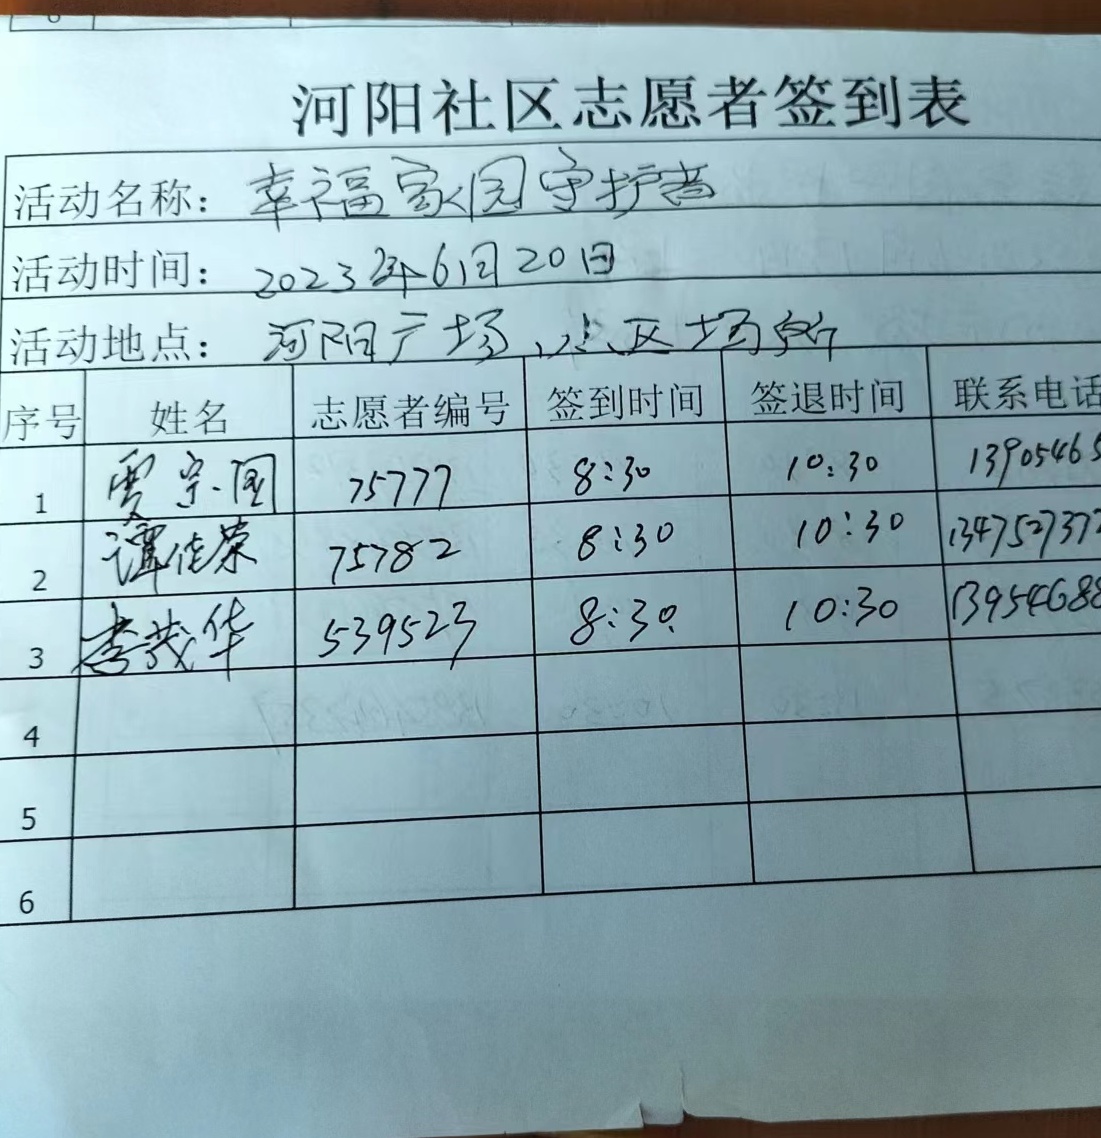 河阳社区志愿者签到表
活动名称: 幸福家园守护者
活动时间: 2023年6月20日
活动地点: 河阳广场、小区场所
序号 姓名 志愿者编号 签到时间 签退时间 联系电话
1 贾宗国 75777 8:30 10:30 1390546
2 谭佳荣 75782 8:30 10:30 1347527372
3 李茂华 539523 8:30 10:30 13954688
4
5
6